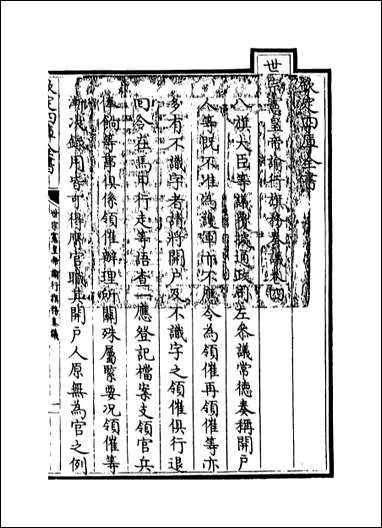 欽定四庫全書
世宗憲皇帝諭行旗務奏議卷四
八旗大臣等議覆據通政司左參議常德奏稱開戶
人等既不准為護軍亦不應令為領催再領催等亦
多有不識字者請將開戶及不識字之領催俱行退
回令在馬甲行走等語查一應登記檔案支領官兵
俸餉等事俱係領催辦理所關殊屬緊要況領催等
漸次錄用皆可得膺官職其開戶人原無為官之例
欽定四庫全書
世宗憲皇帝諭行旗務奏議
一